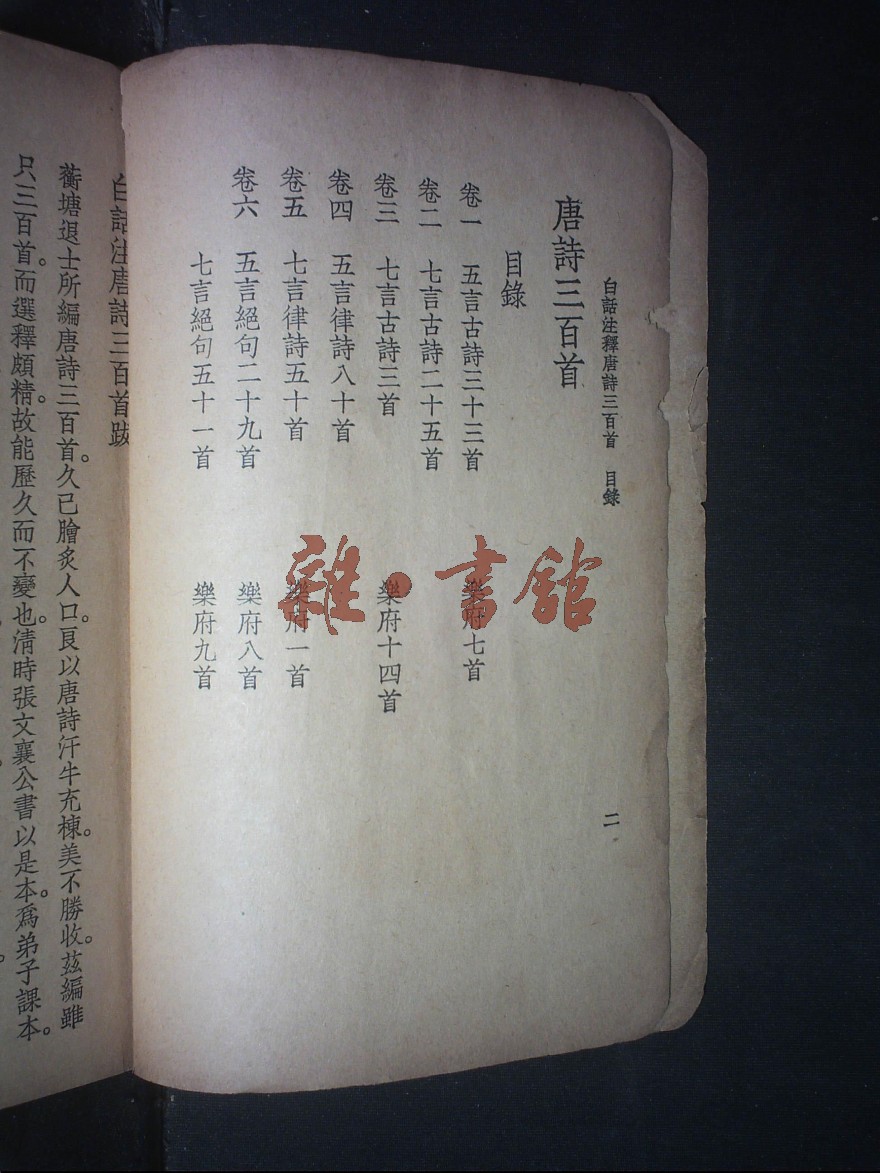 白話注釋唐詩三百首 目錄 二
唐詩三百首
目錄
卷一 五言古詩三十三首 樂府七首
卷二 七言古詩二十五首
卷三 七言古詩三首 樂府十四首
卷四 五言律詩八十首
卷五 七言律詩五十首 樂府一首
卷六 五言絕句二十九首 樂府八首
七言絕句五十一首 樂府九首
白話注唐詩三百首跋
蘅塘退士所編唐詩三百首。久已膾炙人口。良以唐詩汗牛充棟。美不勝收。茲編雖
只三百首。而選釋頗精。故能歷久而不變也。清時張文襄公書以是本。爲弟子課本。
雜·書館